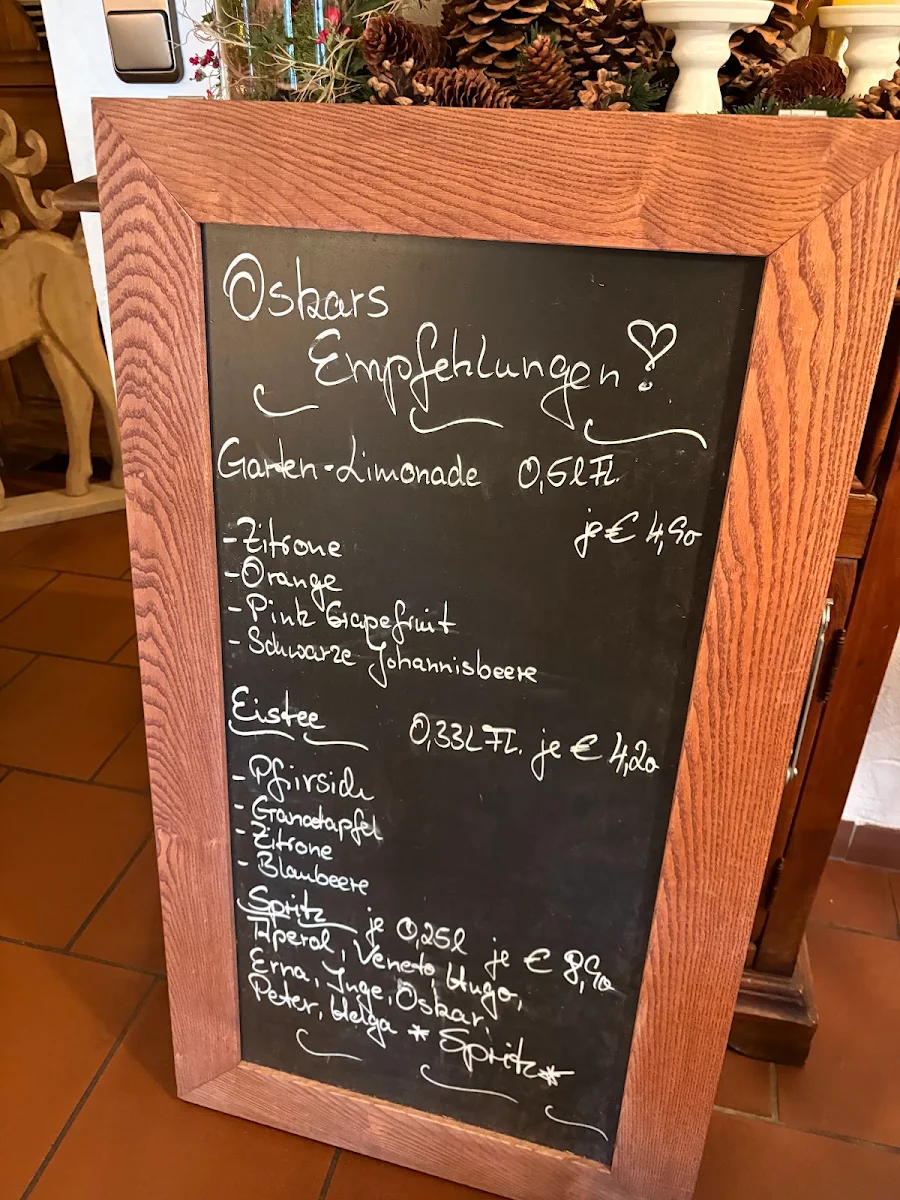 Oskars
Empfehlungen!
Garten-Limonade 0,5l Fl.
je € 4,90
- Zitrone
- Orange
- Pink Grapefruit
- Schwarze Johannisbeere
Eistee 0,33L Fl. je € 4,20
- Pfirsich
- Granatapfel
- Zitrone
- Blaubeere
Spritz je 0,25l je € 8,90
Aperol, Veneto, Hugo,
Erna, Inge, Oskar,
Peter, Helga *Spritz*